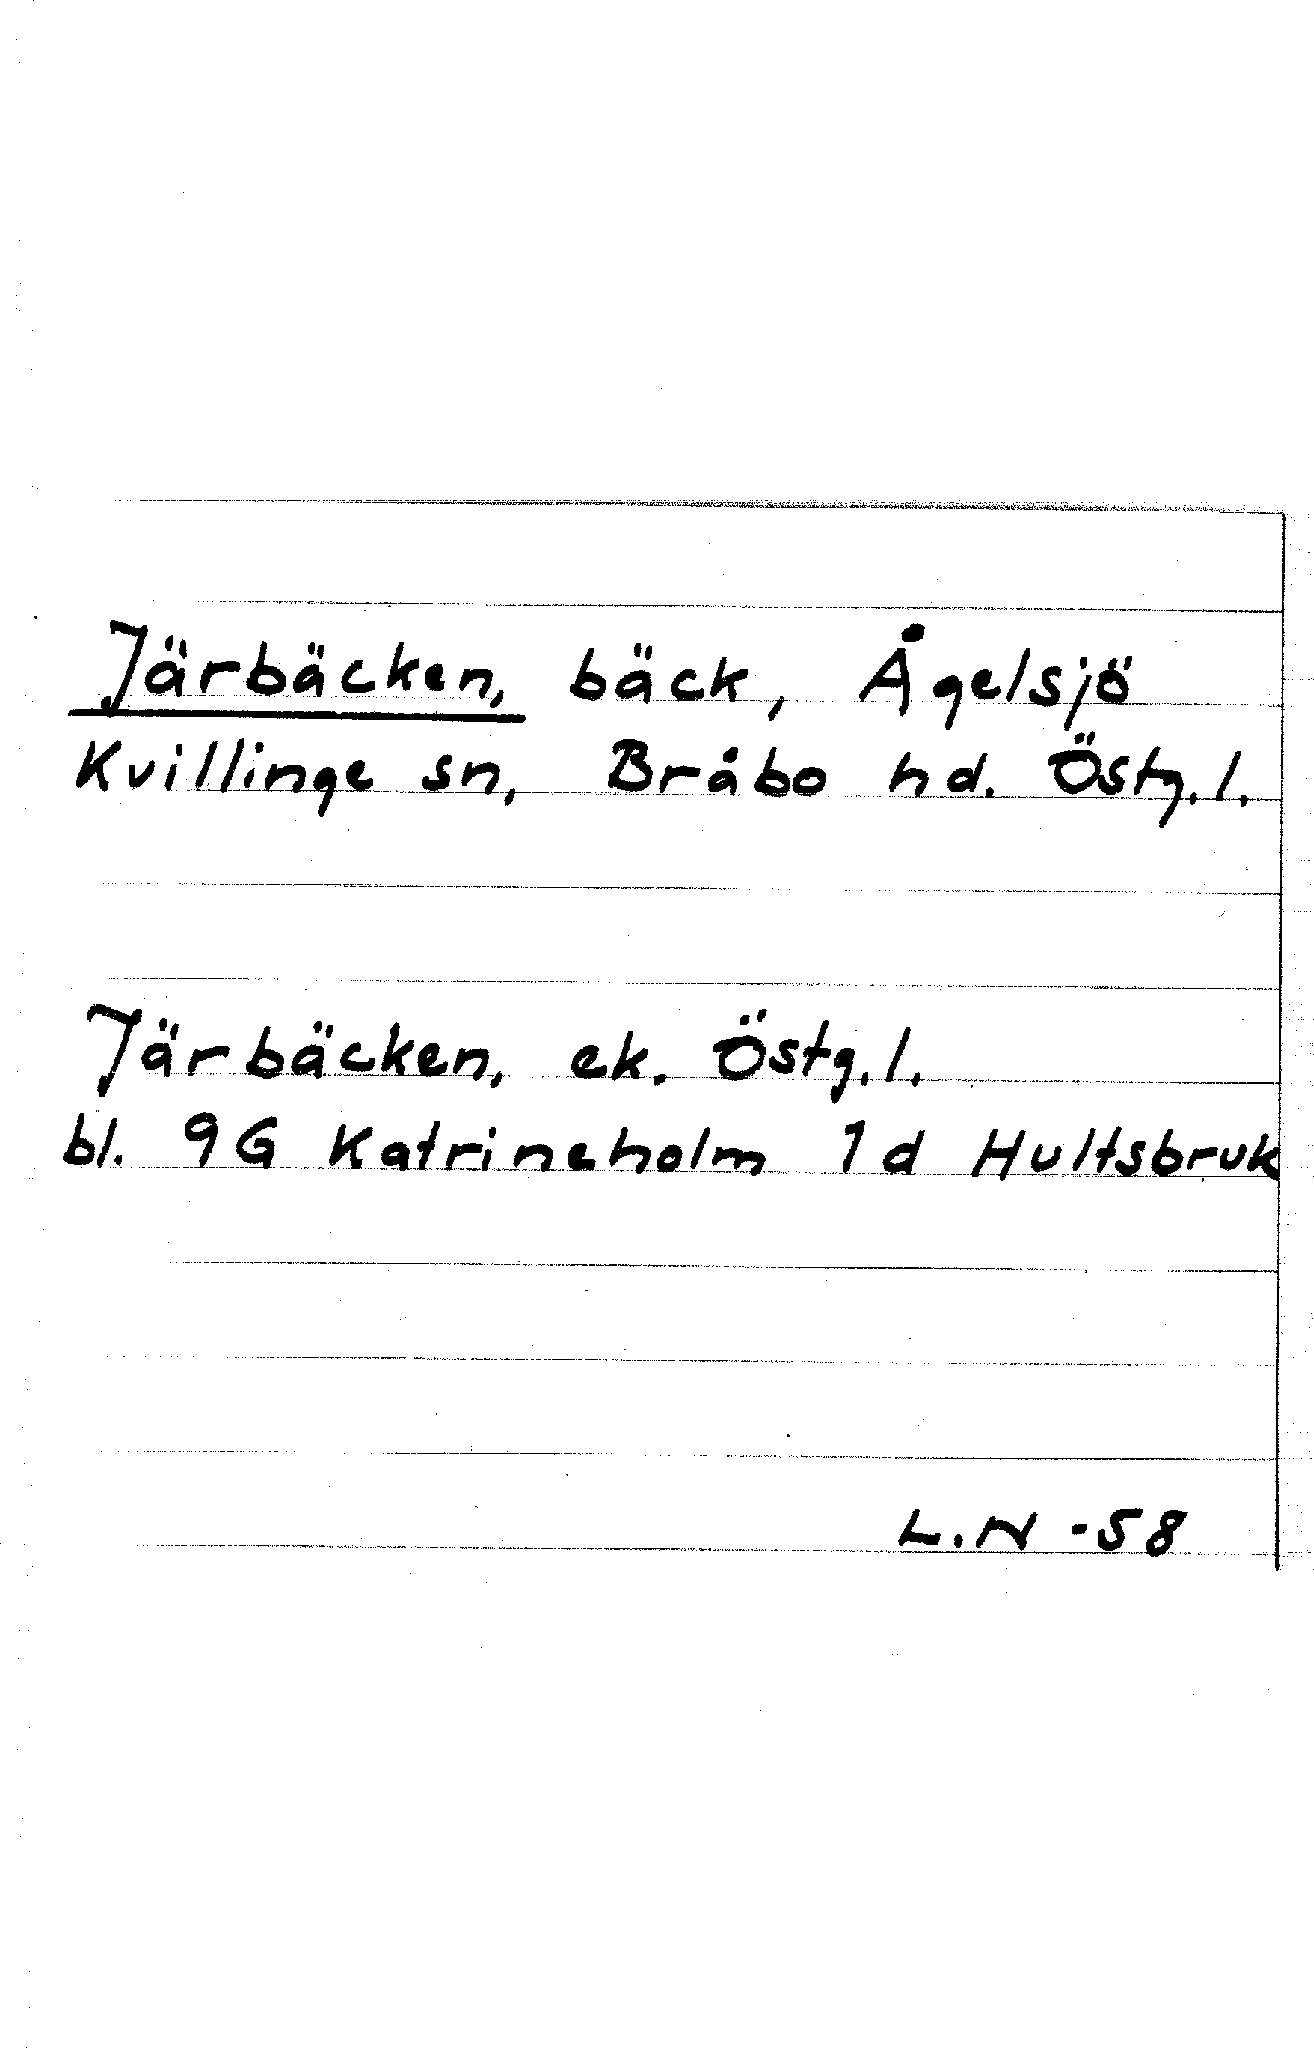 Järbäcken, bäck, Ågelsjö
Kvillinge sn, Bråbo hd. Östg.l.
Järbäcken, ek. Östg.l.
bl. 9G Katrineholm 1d Hultsbruk
L.N -58